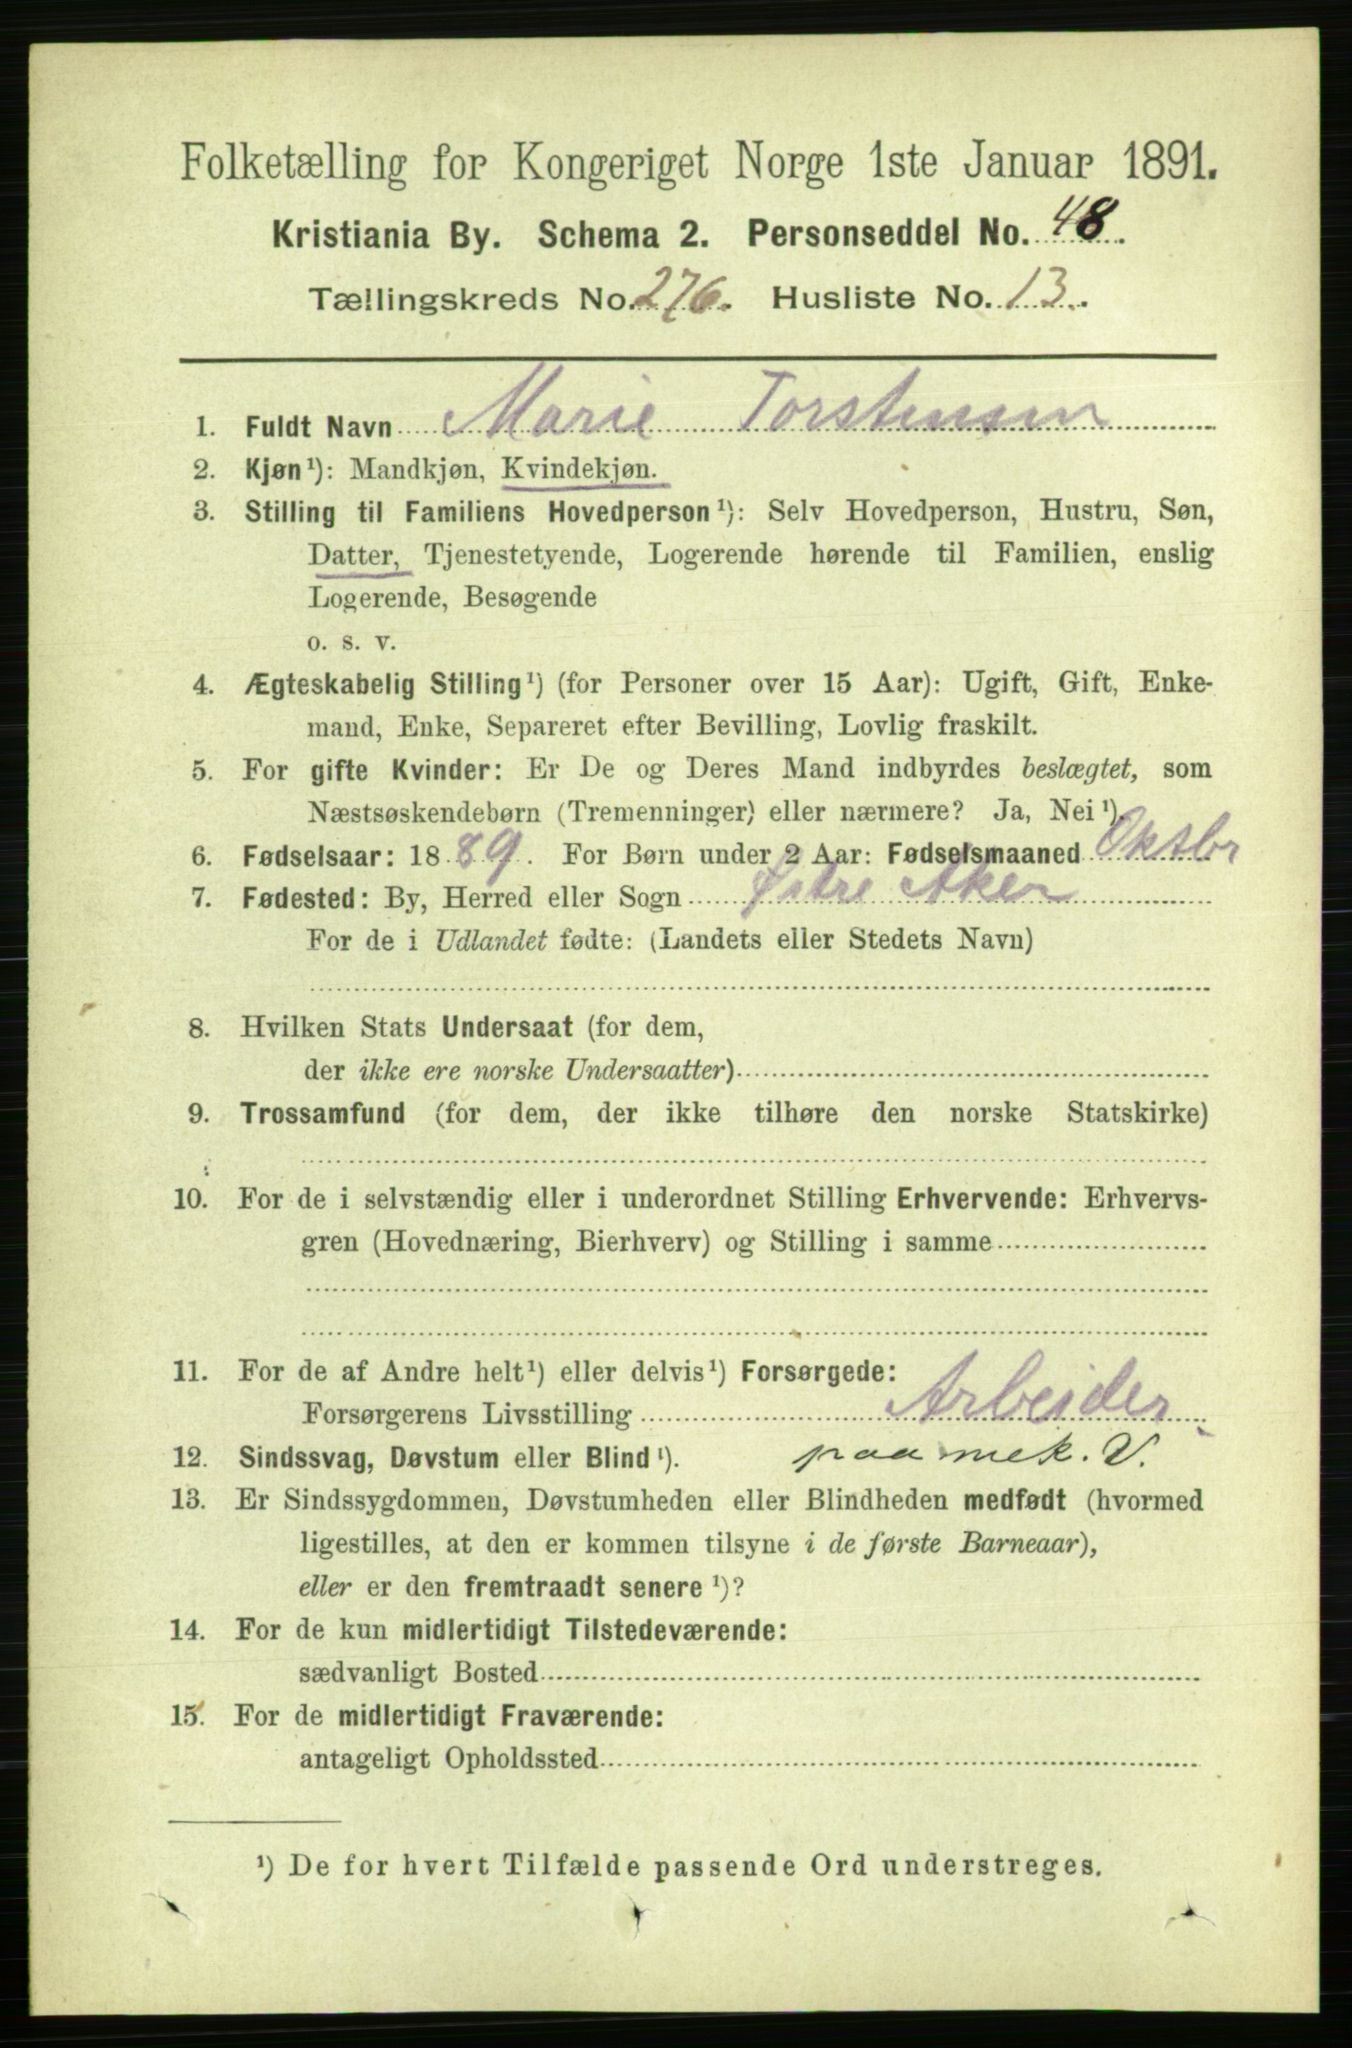 Folketælling for Kongeriget Norge 1ste Januar 1891.
Kristiania By. Schema 2. Personseddel No. 48.
Tællingskreds No. 276. Husliste No. 13.
1. Fuldt Navn Marie Torstensen
2. Kjøn¹): Mandkjøn, Kvindekjøn.
3. Stilling til Familiens Hovedperson¹): Selv Hovedperson, Hustru, Søn,
Datter, Tjenestetyende, Logerende hørende til Familien, enslig
Logerende, Besøgende
o. s. v.
4. Ægteskabelig Stilling¹) (for Personer over 15 Aar): Ugift, Gift, Enke-
mand, Enke, Separeret efter Bevilling, Lovlig fraskilt.
5. For gifte Kvinder: Er De og Deres Mand indbyrdes beslægtet, som
Næstsøskendebørn (Tremenninger) eller nærmere? Ja, Nei¹).
6. Fødselsaar: 1889. For Børn under 2 Aar: Fødselsmaaned Oktbr
7. Fødested: By, Herred eller Sogn Østre Aker
For de i Udlandet fødte: (Landets eller Stedets Navn)
8. Hvilken Stats Undersaat (for dem,
der ikke ere norske Undersaatter)
9. Trossamfund (for dem, der ikke tilhøre den norske Statskirke)
10. For de i selvstændig eller i underordnet Stilling Erhvervende: Erhvervs-
gren (Hovednæring, Bierhverv) og Stilling i samme
11. For de af Andre helt¹) eller delvis¹) Forsørgede:
Forsørgerens Livsstilling Arbeider
12. Sindssvag, Døvstum eller Blind¹). paa mek. V.
13. Er Sindssygdommen, Døvstumheden eller Blindheden medfødt (hvormed
ligestilles, at den er kommen tilsyne i de første Barneaar),
eller er den fremtraadt senere¹)?
14. For de kun midlertidigt Tilstedeværende:
sædvanligt Bosted
15. For de midlertidigt Fraværende:
antageligt Opholdssted
¹) De for hvert Tilfælde passende Ord understreges.